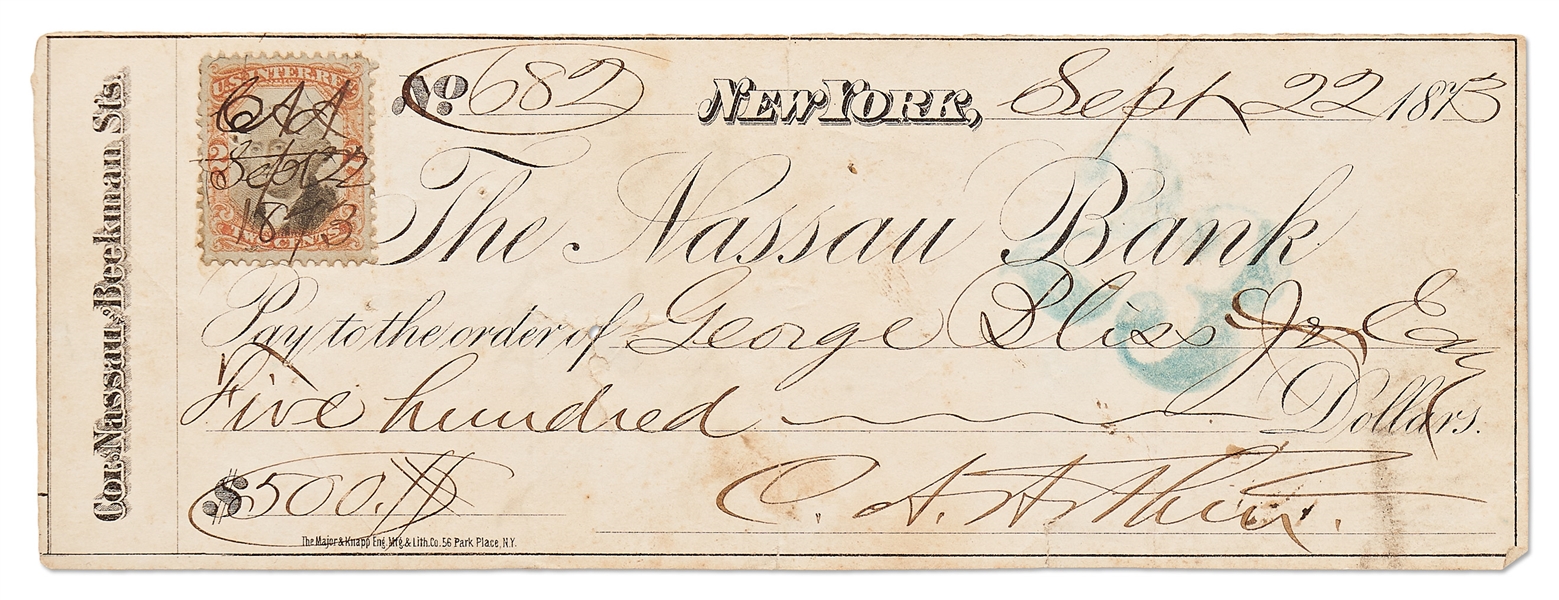 Cor. Nassau AND Beekman Sts.
U.S. INTER. REV.
CAA
Sept 22
1873
TWO CENTS
No 682 NEW YORK, Sept 22 1873
The Nassau Bank
Pay to the order of George Bliss Jr Esq
Five hundred Dollars.
$500.
C. A. Arthur.
The Major & Knapp Eng. Mfg. & Lith. Co. 56 Park Place, N.Y.